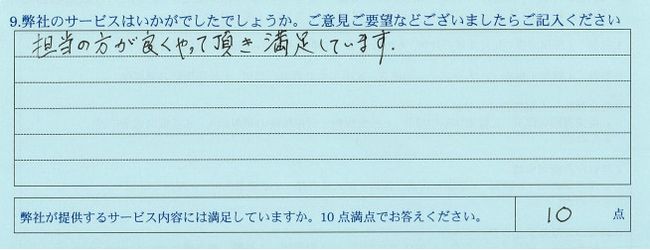 9.弊社のサービスはいかがでしたでしょうか。ご意見ご要望などございましたらご記入ください
担当の方が良くやって頂き満足しています.
弊社が提供するサービス内容には満足していますか。10点満点でお答えください。 10 点